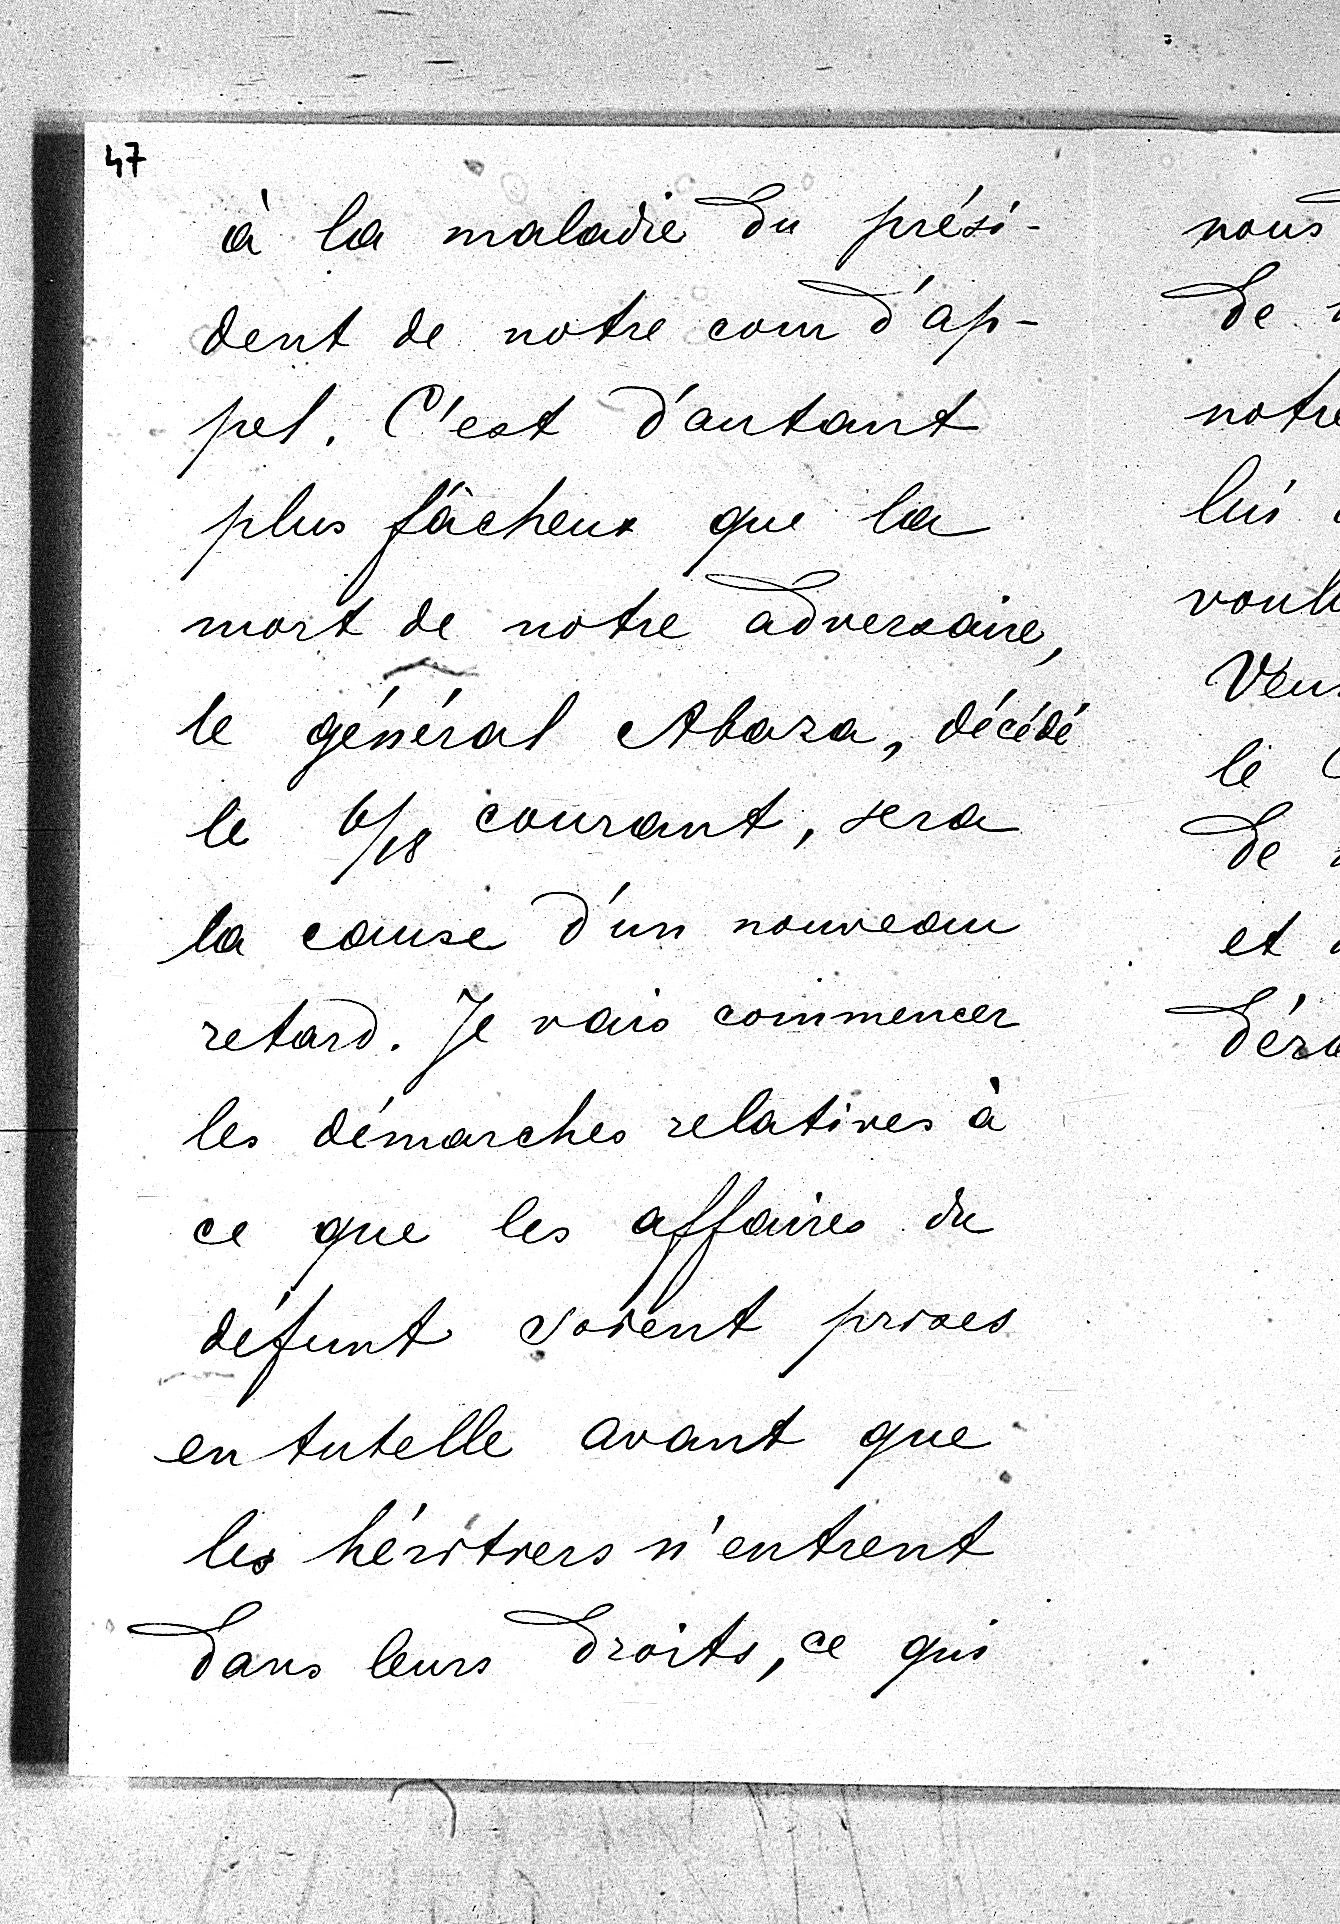 47
à la maladie du prési-
dent de notre cour d'ap-
pel. C'est d'autant
plus fâcheux que la
mort de notre adversaire,
le général Abaza, décédé
le 6/18 courant, sera
la cause d'un nouveau
retard. Je vais commencer
les démarches relatives à
ce que les affaires du
défunt soient prises
en tutelle avant que
les héritiers n'entrent
dans leurs droits, ce qui
nous
de
notre
lui
le
de
et